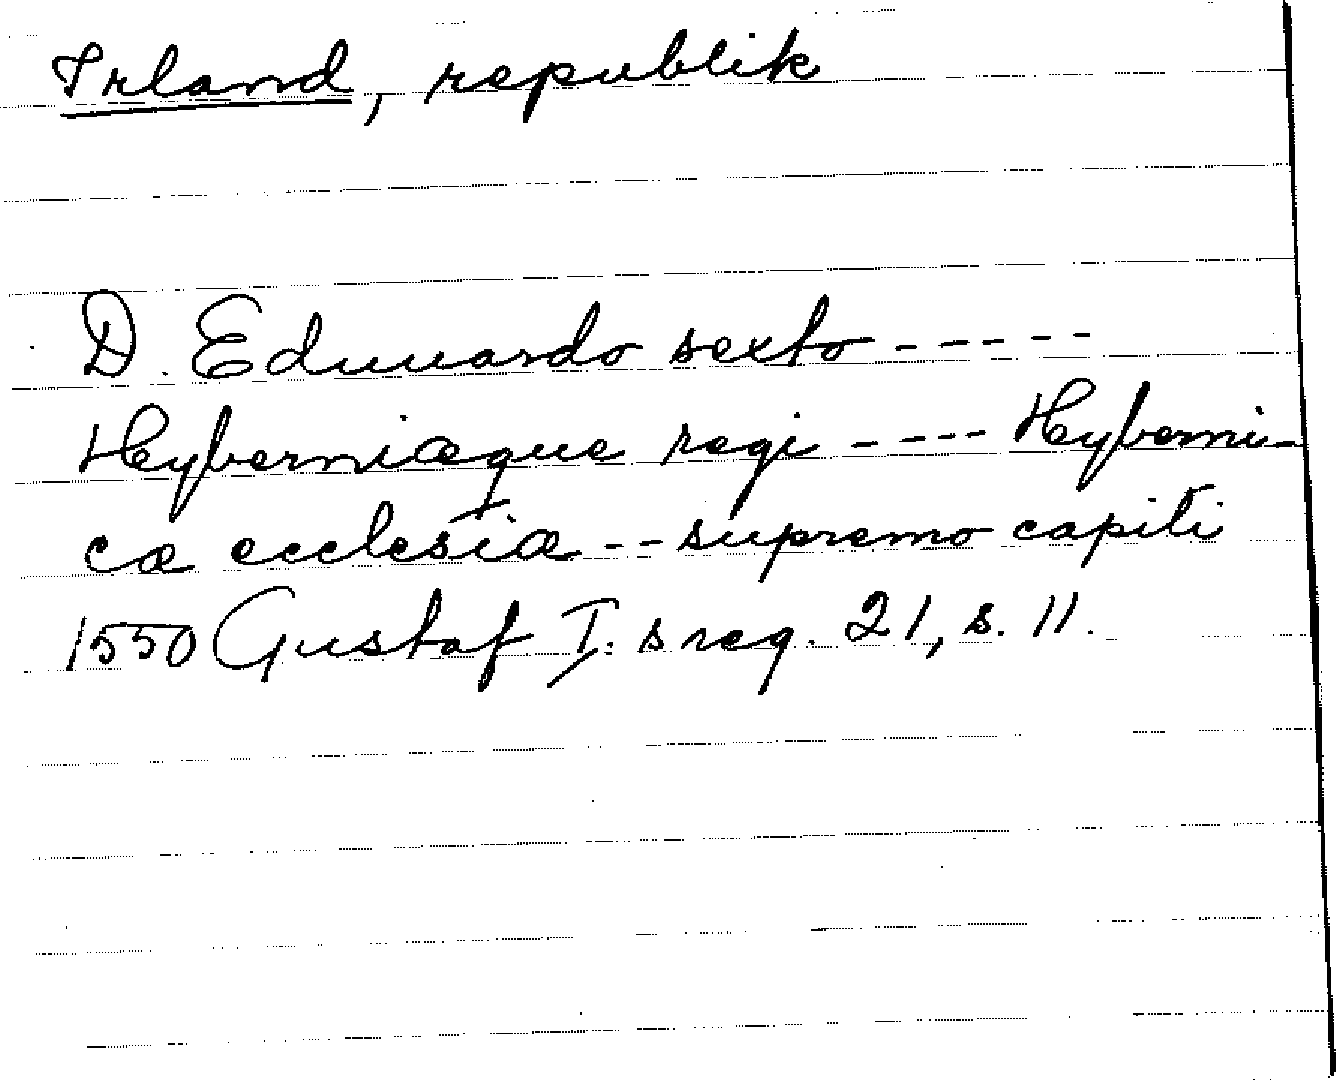 Irland, republik
D. Eduuardo sexto -----
Hyberniæque regi ---- Hyberni-
cæ ecclesiæ -- supremo capiti
1550 Gustaf I:s reg. 21, s. 11.